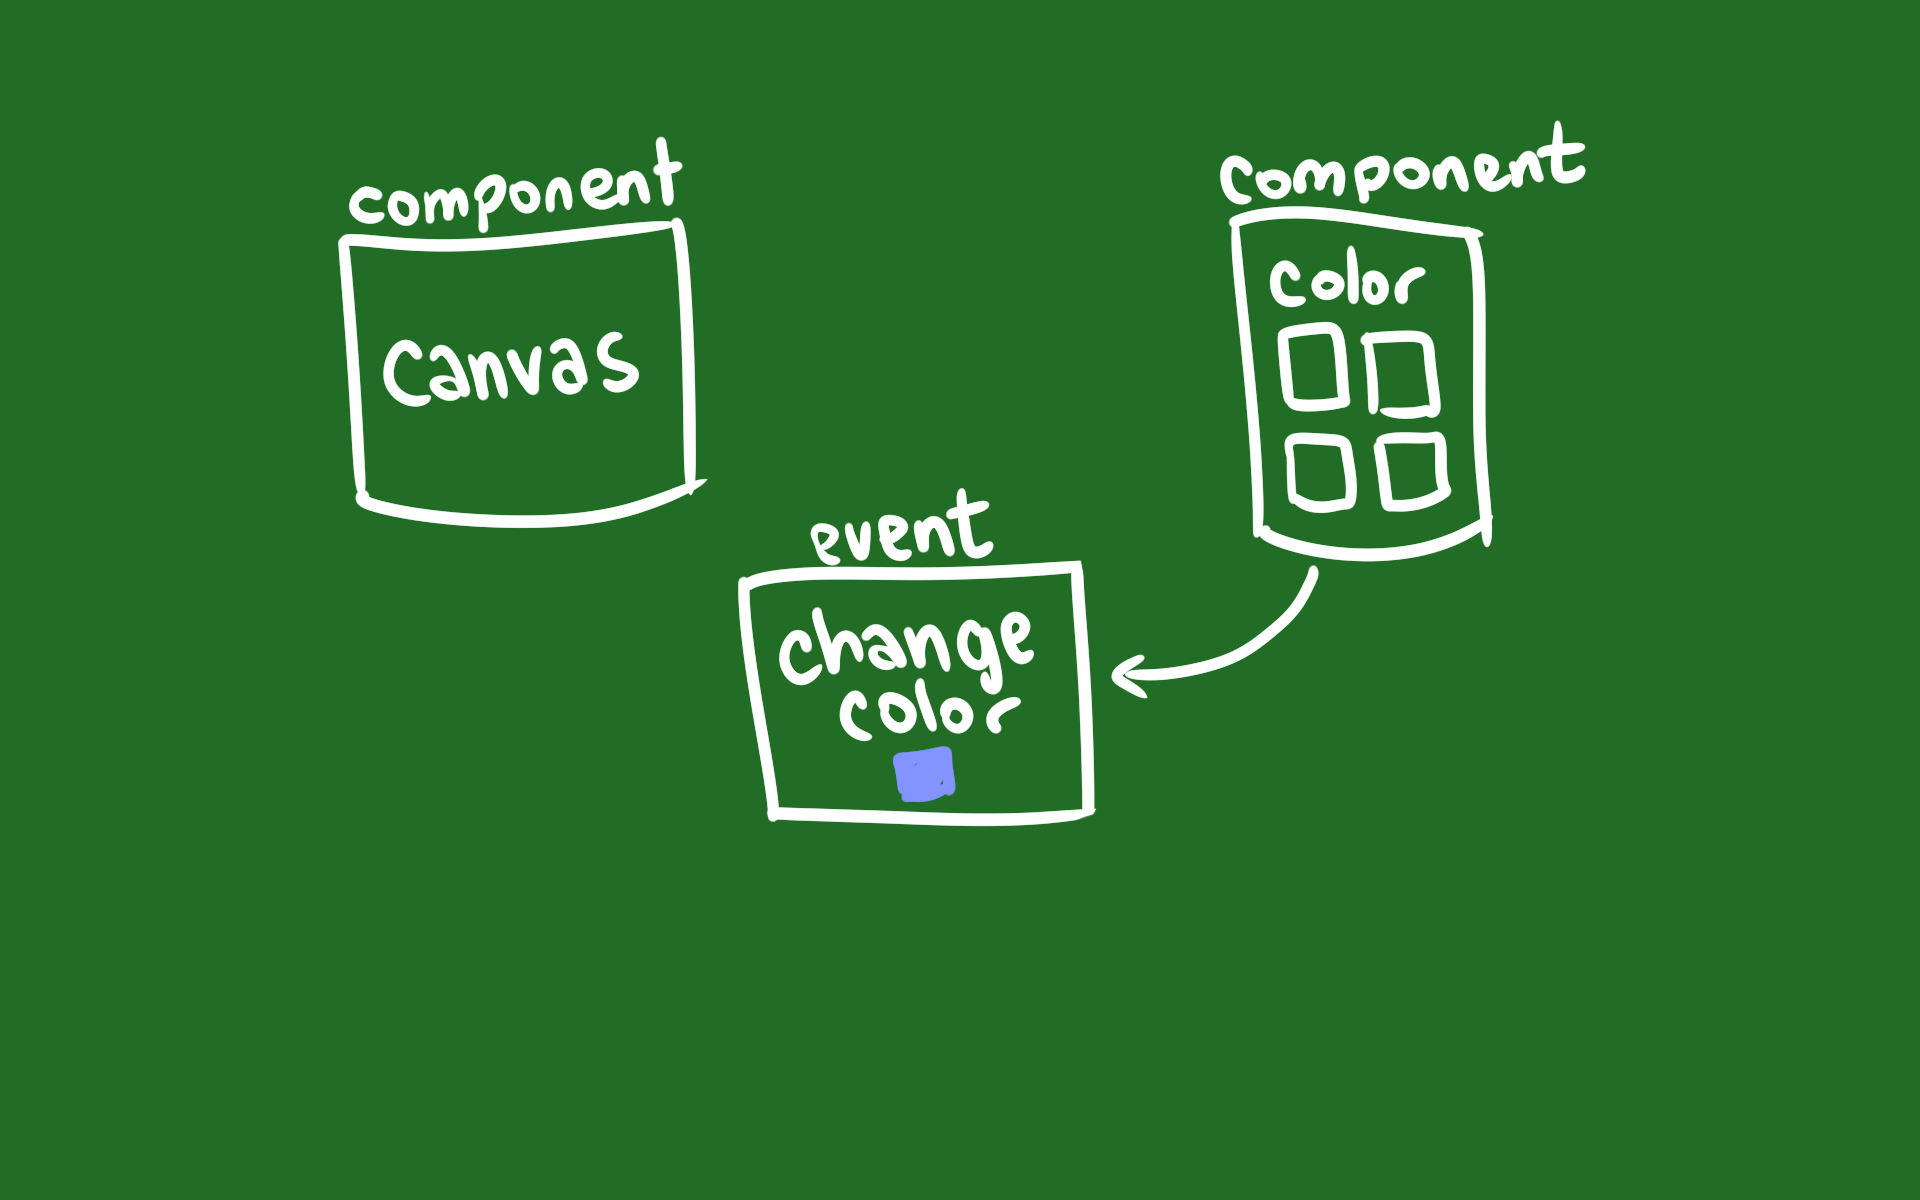 component
Canvas
component
color
event
change
color